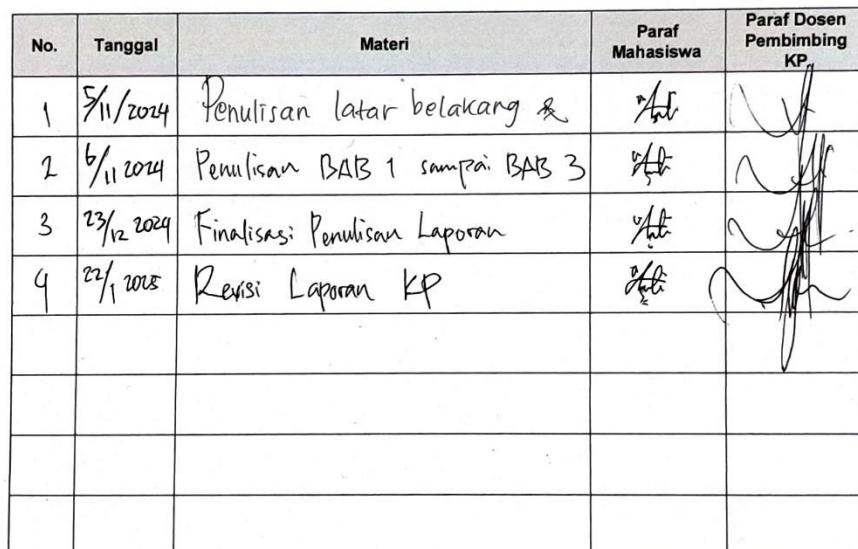 No. Tanggal Materi Paraf Mahasiswa Paraf Dosen Pembimbing KP
1 5/11/2024 Penulisan latar belakang &
2 6/11 2024 Penulisan BAB 1 sampai BAB 3
3 23/12 2024 Finalisasi Penulisan Laporan
4 22/1 2025 Revisi Laporan KP